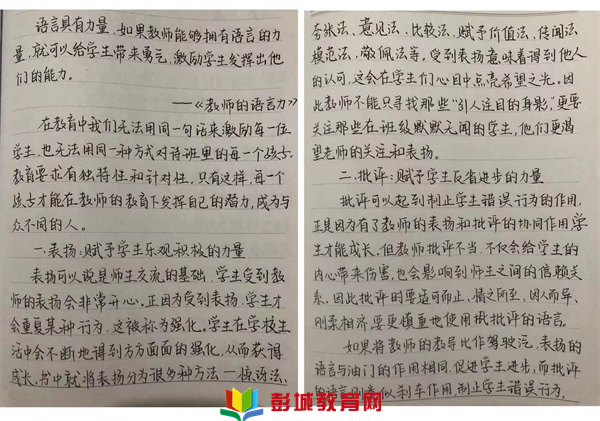 语言具有力量,如果教师能够拥有语言的力
量,就可以给学生带来勇气,激励学生发挥出他
们的能力。
——《教师的语言力》
在教育中我们无法用同一句话来激励每一位
学生,也无法用同一种方式对待班里的每一个孩子。
教育要求有独特性和针对性,只有这样,每一个
孩子才能在教师的教育下发挥自己的潜力,成为与
众不同的人。
一.表扬:赋予学生乐观积极的力量
表扬可以说是师生交流的基础,学生受到教
师的表扬会非常开心。正因为受到表扬,学生才
会重复某种行为,这被称为强化。学生在学校生
活中会不断地得到方方面面的强化,从而获得
成长。书中就将表扬分为很多种方法——惊讶法、
夸张法、意见法、比较法、赋予价值法、传闻法
模范法、敬佩法等,受到表扬意味着得到他人
的认可,这会在学生们心目中点亮希望之光。因
此教师不能只寻找那些“引人注目的身影”,更要
关注那些在班级默默无闻的学生,他们更渴
望老师的关注和表扬。
二.批评:赋予学生反省进步的力量
批评可以起到制止学生错误行为的作用,
正是因为有了教师的表扬和批评的协同作用,学
生才能成长。但教师批评不当,不仅会给学生的
内心带来伤害,也会影响到师生之间的信赖关
系,因此批评时要适可而止、情之所至、因人而异、
刚柔相济,要更慎重地使用批批评的语言。
如果将教师的教导比作驾驶汽车,表扬的
语言与油门的作用相同,促进学生进步,而批评
的语言则类似刹车作用,制止学生错误行为。
彭城教育网